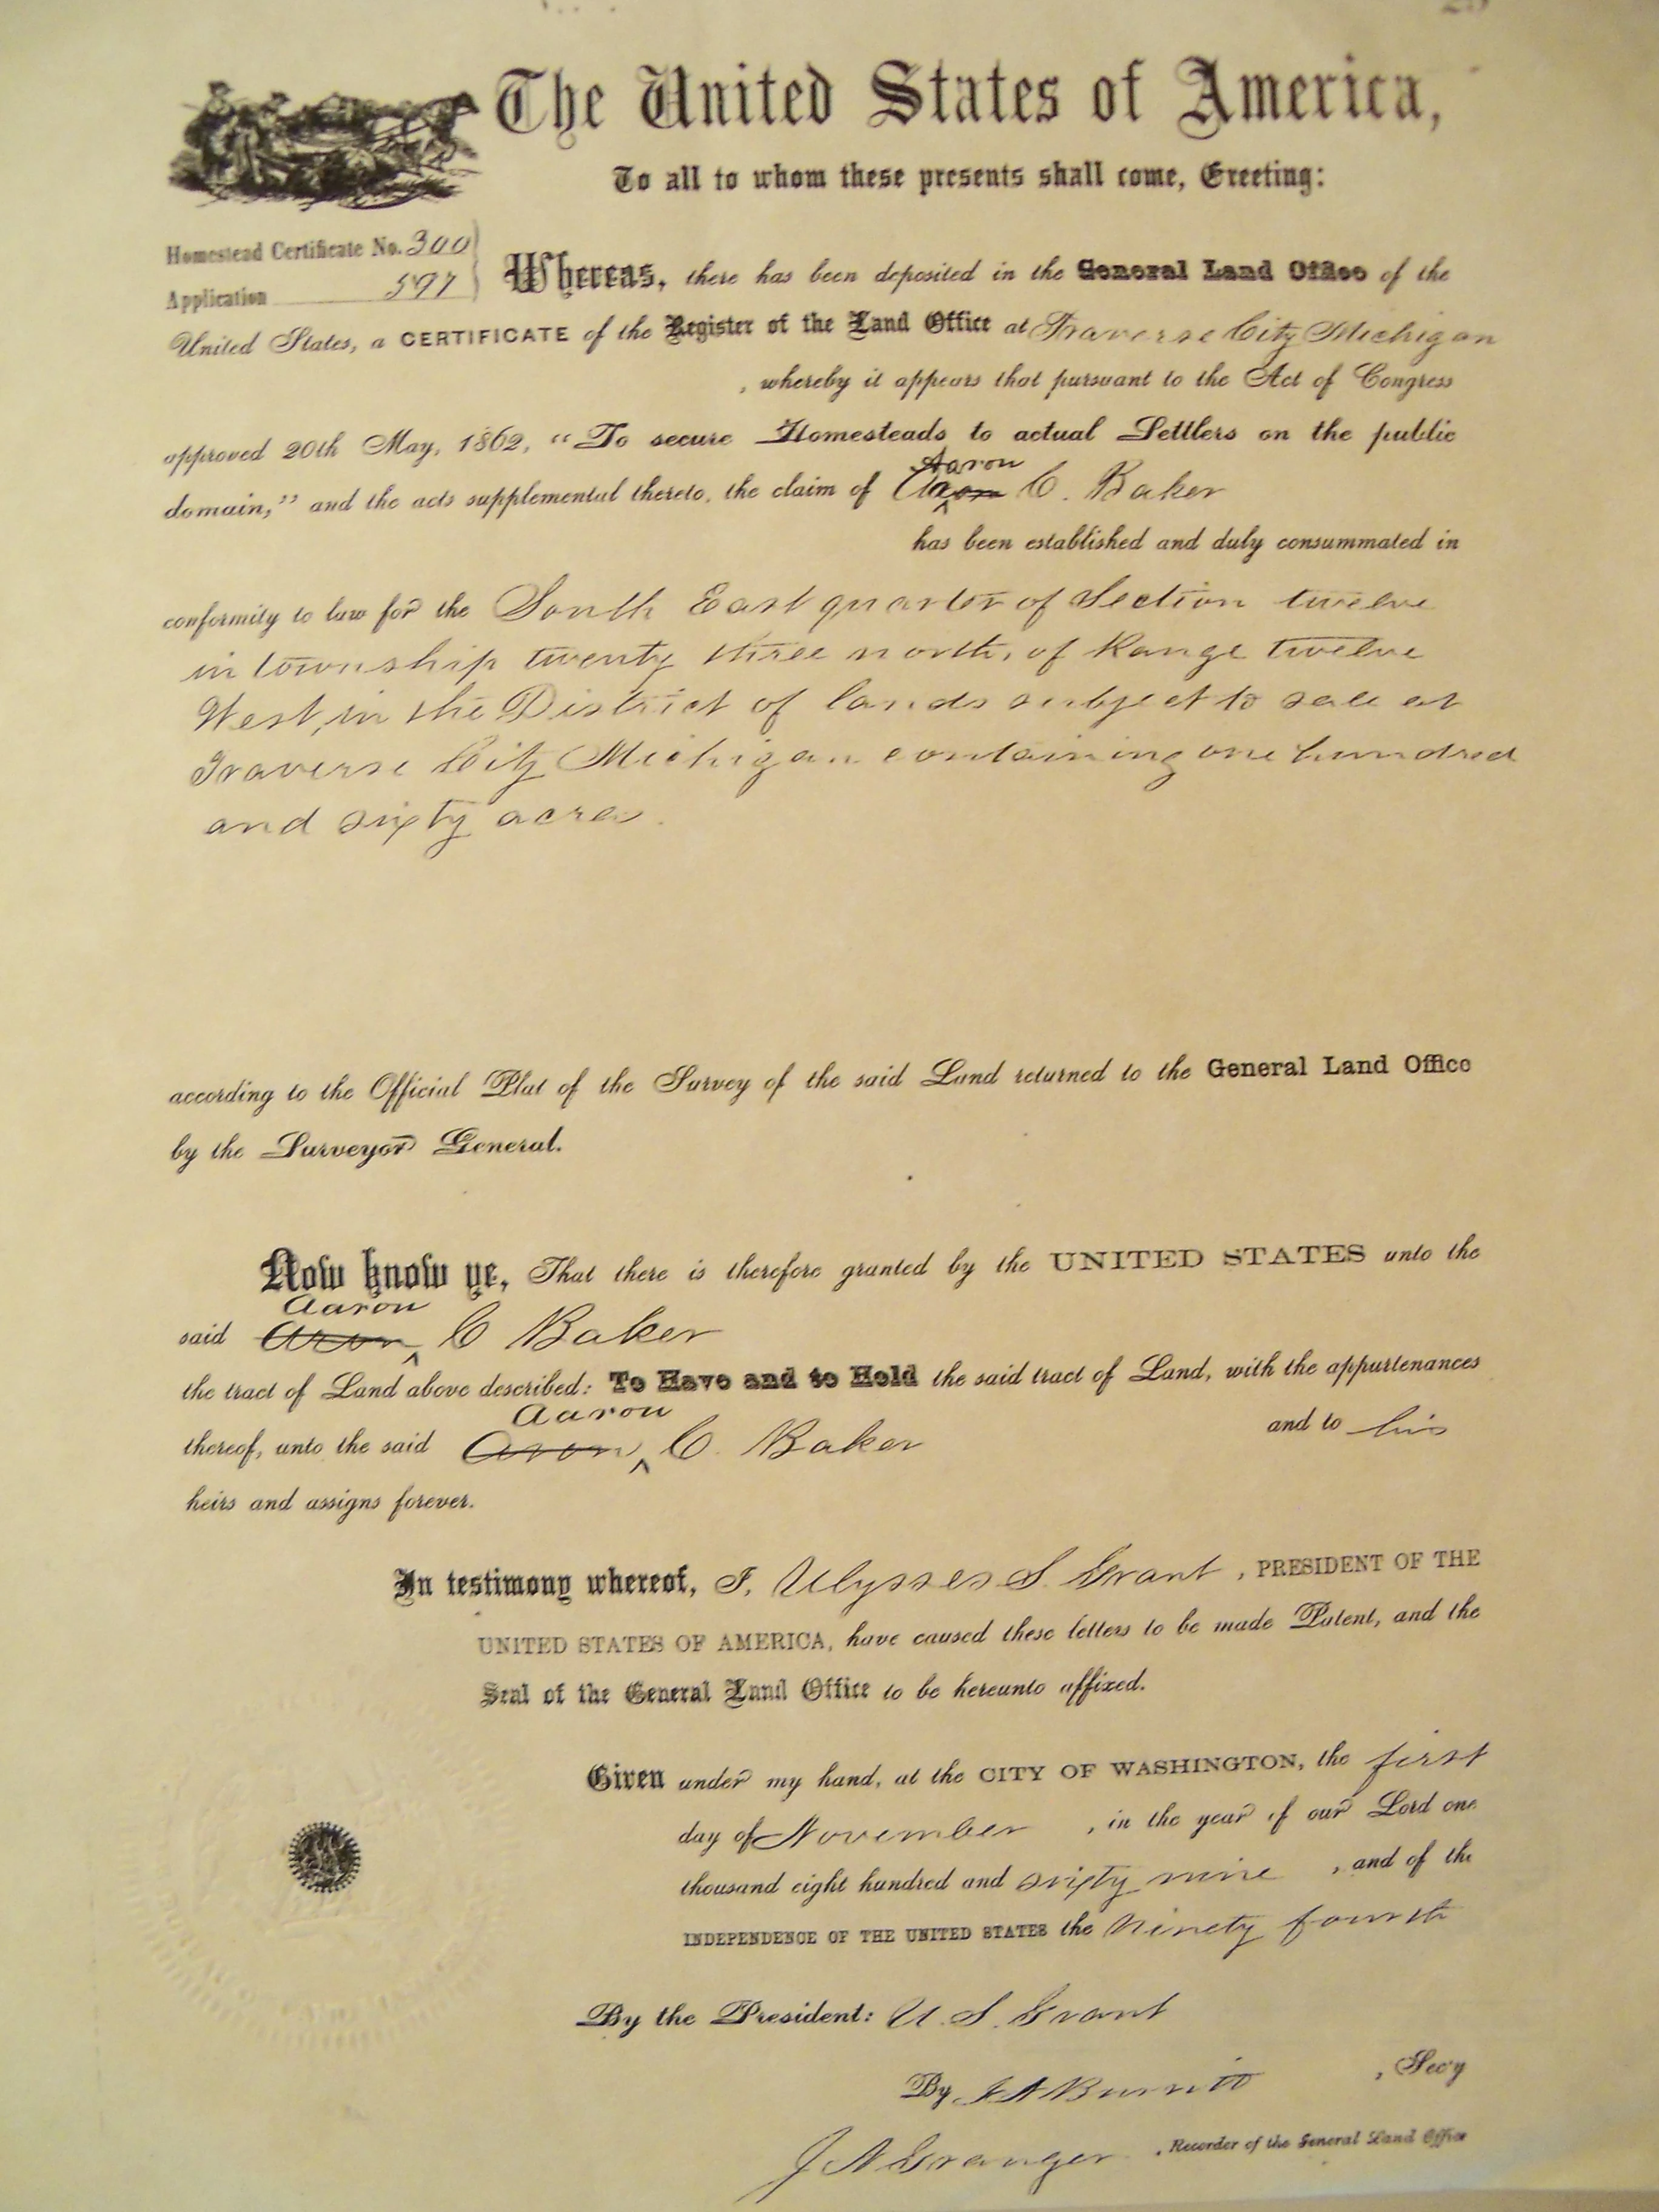 The United States of America,
To all to whom these presents shall come, Greeting:
Homestead Certificate No. 300
Application 597
Whereas, there has been deposited in the General Land Office of the
United States, a CERTIFICATE of the Register of the Land Office at Traverse City Michigan
, whereby it appears that pursuant to the Act of Congress
approved 20th May, 1862, “To secure Homesteads to actual Settlers on the public
Aaron
domain,” and the acts supplemental thereto, the claim of C. Baker
has been established and duly consummated in
conformity to law for the South East quarter of Section twelve
in township twenty three north, of Range twelve
West, in the District of lands subject to sale at
Traverse City Michigan containing one hundred
and sixty acres.
according to the Official Plat of the Survey of the said Land returned to the General Land Office
by the Surveyor General.
Now know ye, That there is therefore granted by the UNITED STATES unto the
Aaron
said Aron ^ C Baker
the tract of Land above described: To Have and to Hold the said tract of Land, with the appurtenances
Aaron
thereof, unto the said Aron ^ C. Baker and to his
heirs and assigns forever.
In testimony whereof, I, Ulysses S. Grant, PRESIDENT OF THE
UNITED STATES OF AMERICA, have caused these letters to be made Patent, and the
Seal of the General Land Office to be hereunto affixed.
Given under my hand, at the CITY OF WASHINGTON, the first
day of November, in the year of our Lord one
thousand eight hundred and sixty nine, and of the
INDEPENDENCE OF THE UNITED STATES the Ninety fourth
By the President: U. S. Grant
By , Sec'y
Granger , Recorder of the General Land Office